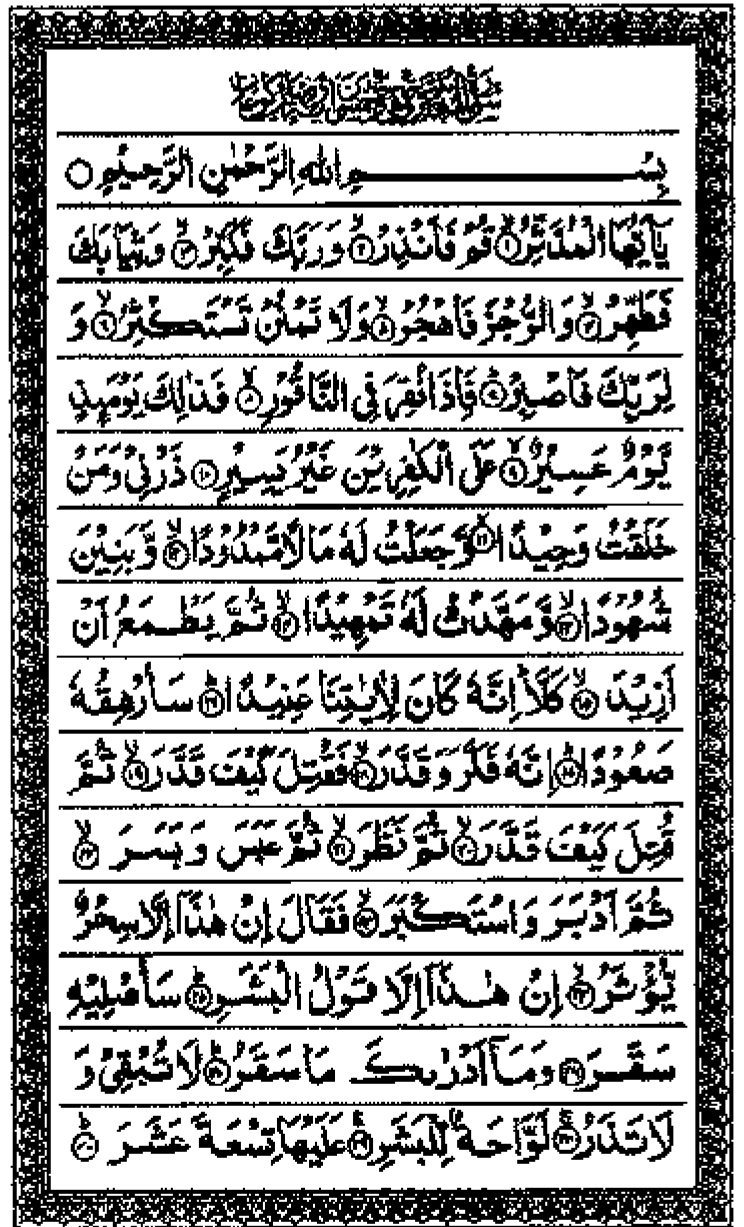 بِسْمِ اللهِ الرَّحْمٰنِ الرَّحِيْمِ ○
يٰٓاَيُّهَا الْمُدَّثِّرُ ۙ﴿۱﴾ قُمْ فَاَنْذِرْ ۙ﴿۲﴾ وَرَبَّكَ فَكَبِّرْ ۙ﴿۳﴾ وَثِيَابَكَ
فَطَهِّرْ ۙ﴿۴﴾ وَالرُّجْزَ فَاهْجُرْ ۙ﴿۵﴾ وَلَا تَمْنُنْ تَسْتَكْثِرُ ۙ﴿۶﴾ وَ
لِرَبِّكَ فَاصْبِرْ ؕ﴿۷﴾ فَاِذَا نُقِرَ فِى النَّاقُوْرِ ۙ﴿۸﴾ فَذٰلِكَ يَوْمَئِذٍ
يَّوْمٌ عَسِيْرٌ ۙ﴿۹﴾ عَلَى الْكٰفِرِيْنَ غَيْرُ يَسِيْرٍ ﴿۱۰﴾ ذَرْنِىْ وَمَنْ
خَلَقْتُ وَحِيْدًا ۙ﴿۱۱﴾ وَّجَعَلْتُ لَهٗ مَالًا مَّمْدُوْدًا ۙ﴿۱۲﴾ وَّبَنِيْنَ
شُهُوْدًا ۙ﴿۱۳﴾ وَّمَهَّدْتُّ لَهٗ تَمْهِيْدًا ۙ﴿۱۴﴾ ثُمَّ يَطْمَعُ اَنْ
اَزِيْدَ ۙ﴿۱۵﴾ كَلَّا اِنَّهٗ كَانَ لِاٰيٰتِنَا عَنِيْدًا ؕ﴿۱۶﴾ سَاُرْهِقُهٗ
صَعُوْدًا ؕ﴿۱۷﴾ اِنَّهٗ فَكَّرَ وَقَدَّرَ ۙ﴿۱۸﴾ فَقُتِلَ كَيْفَ قَدَّرَ ۙ﴿۱۹﴾ ثُمَّ
قُتِلَ كَيْفَ قَدَّرَ ۙ﴿۲۰﴾ ثُمَّ نَظَرَ ۙ﴿۲۱﴾ ثُمَّ عَبَسَ وَبَسَرَ ۙ﴿۲۲﴾
ثُمَّ اَدْبَرَ وَاسْتَكْبَرَ ۙ﴿۲۳﴾ فَقَالَ اِنْ هٰذَآ اِلَّا سِحْرٌ
يُّؤْثَرُ ۙ﴿۲۴﴾ اِنْ هٰذَآ اِلَّا قَوْلُ الْبَشَرِ ؕ﴿۲۵﴾ سَاُصْلِيْهِ
سَقَرَ ﴿۲۶﴾ وَمَآ اَدْرٰىكَ مَا سَقَرُ ؕ﴿۲۷﴾ لَا تُبْقِىْ وَ
لَا تَذَرُ ۚ﴿۲۸﴾ لَوَّاحَةٌ لِّلْبَشَرِ ۚ﴿۲۹﴾ عَلَيْهَا تِسْعَةَ عَشَرَ ؕ﴿۳۰﴾